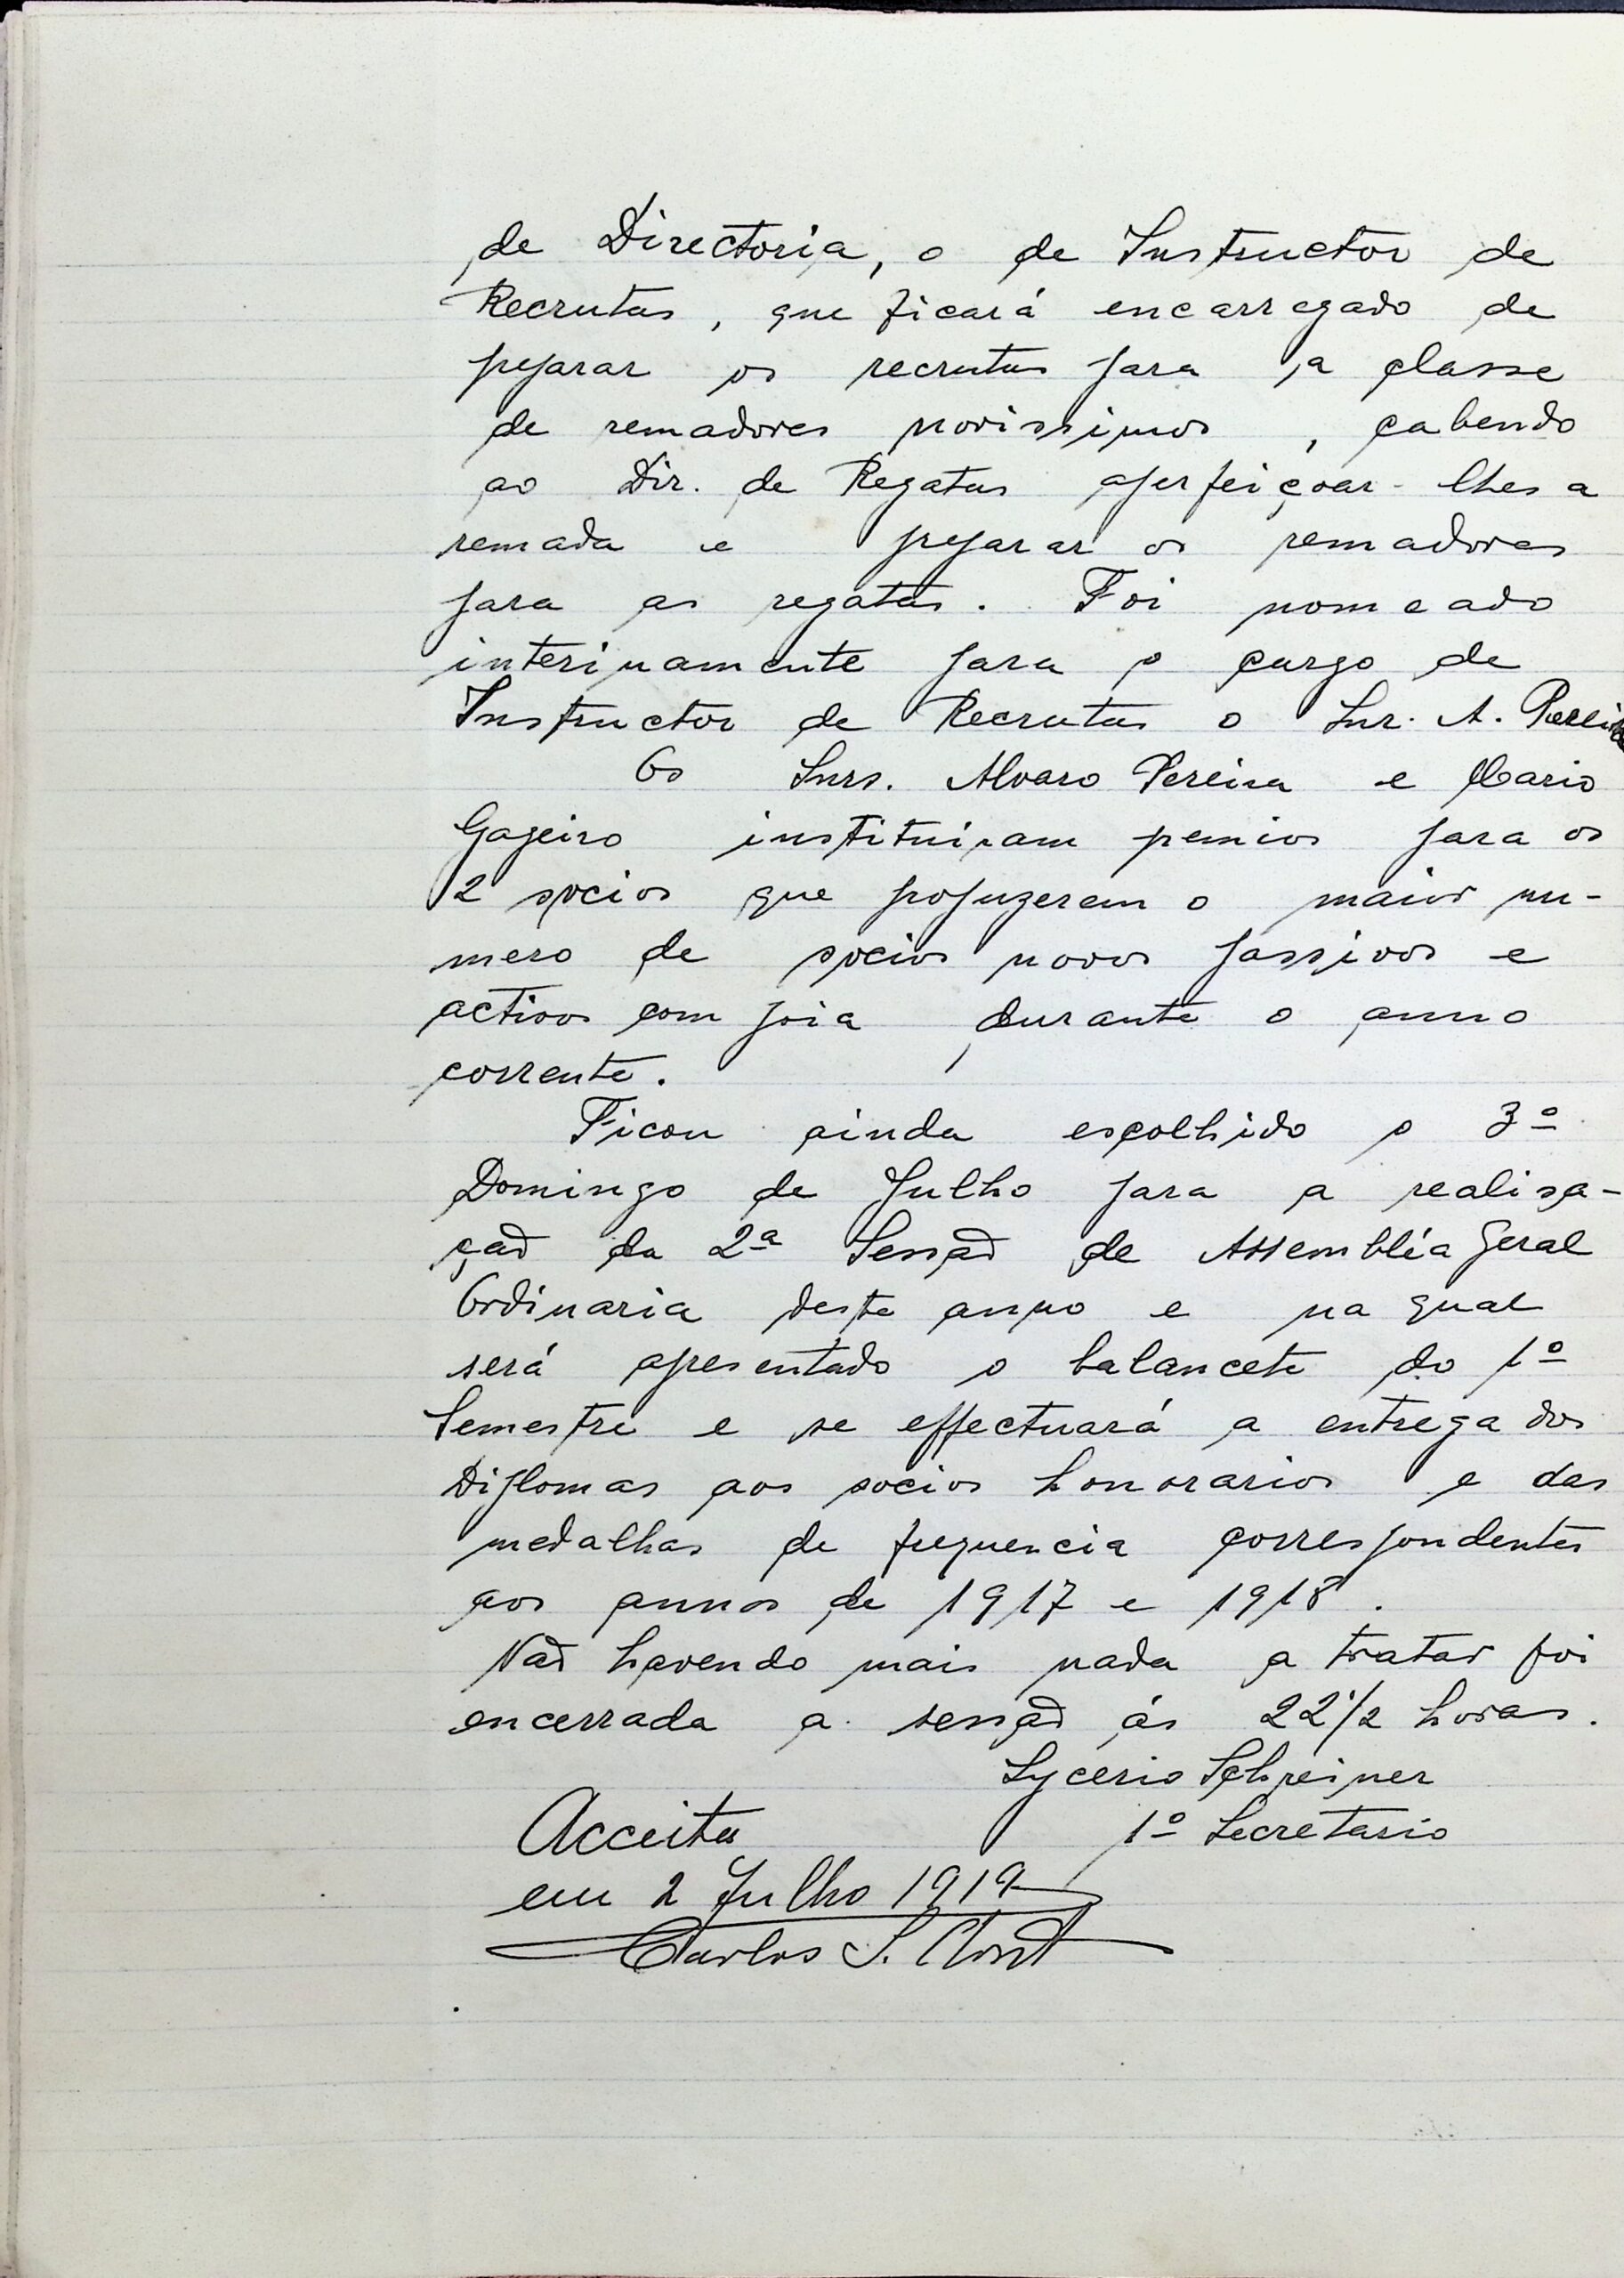 de Directoria, o de Instructor de
Recrutas, que ficará encarregado de
preparar os recrutas para a classe
de remadores novissimos, cabendo
ao Dir. de Regatas aperfeiçoar-lhes a
remada e preparar os remadores
para as regatas. Foi nomeado
interinamente para o cargo de
Instructor de Recrutas o Snr. A. Pereira
Os Snrs. Alvaro Pereira e Mario
instituiram premios para os
2 socios que propuzerem o maior nu-
mero de socios novos passivos e
activos com joia durante o anno
corrente.
Ficou ainda escolhido o 3º
Domingo de Julho para a realisa-
ção da 2ª Sessão de Assembléa Geral
Ordinaria deste anno e na qual
será apresentado o balancete do 1º
Semestre e se effectuará a entrega dos
Diplomas aos socios honorarios e das
medalhas de frequencia correspondentes
aos annos de 1917 e 1918.
Não havendo mais nada a tratar foi
encerrada a sessão ás 22 1/2 horas.
Lycerio Schreiner
1º Secretario
Acceita
em 2 Julho 1919
Carlos S.